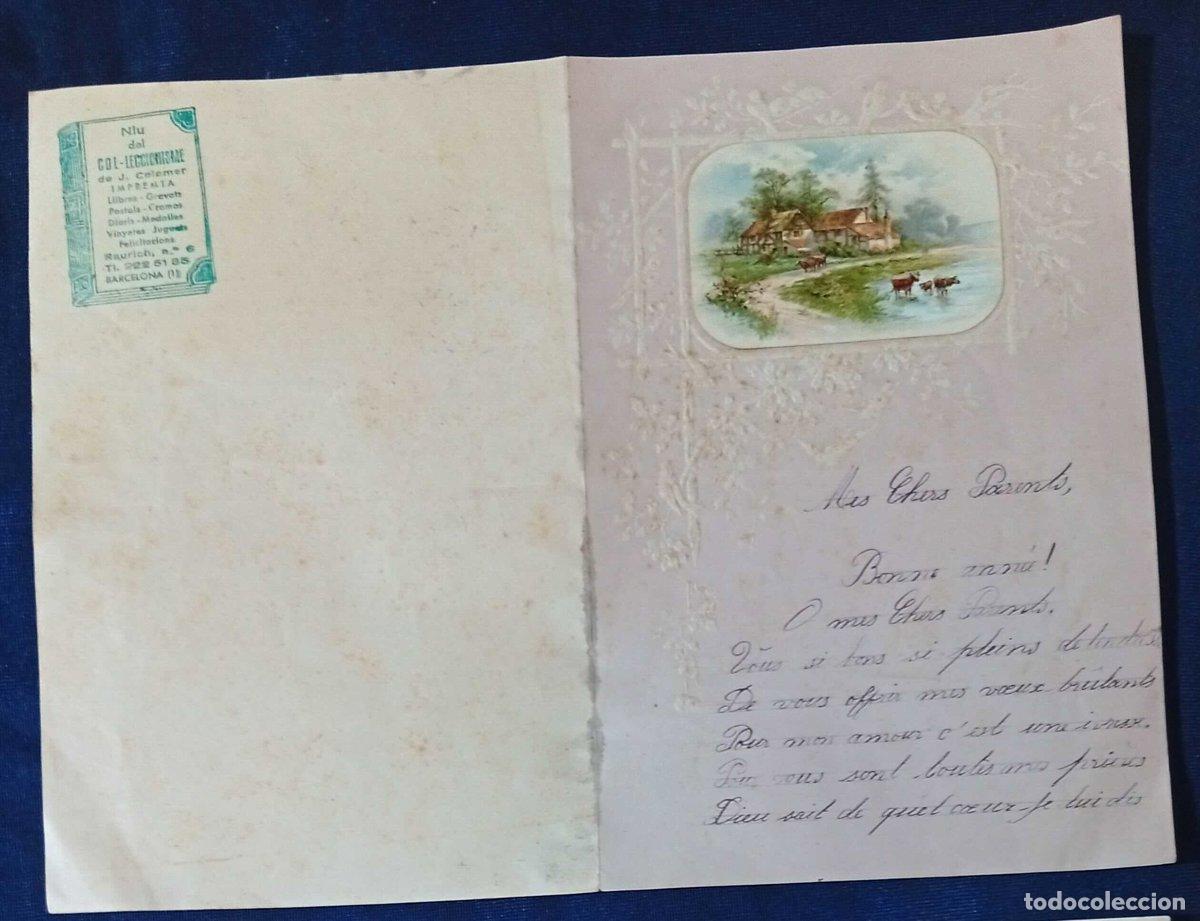 Niu
del
COL-LECCIONISME
de J. Colomer
IMPREMTA
Llibres - Gravats
Postals - Cromos
Diaris - Medalles
Vinyetes Joguets
Felicitacions
Raurich, n.º 6
Tl. 222 51 85
BARCELONA (1)
Mes Chers Parents,
Bonne année!
O mes Chers Parents.
Vous si bons si pleins de tendresse
De vous offrir mes vœux brûlants
Pour mon amour c'est une ivresse.
Pour vous sont toutes mes prières
Dieu sait de quel cœur je lui dis
todocoleccion